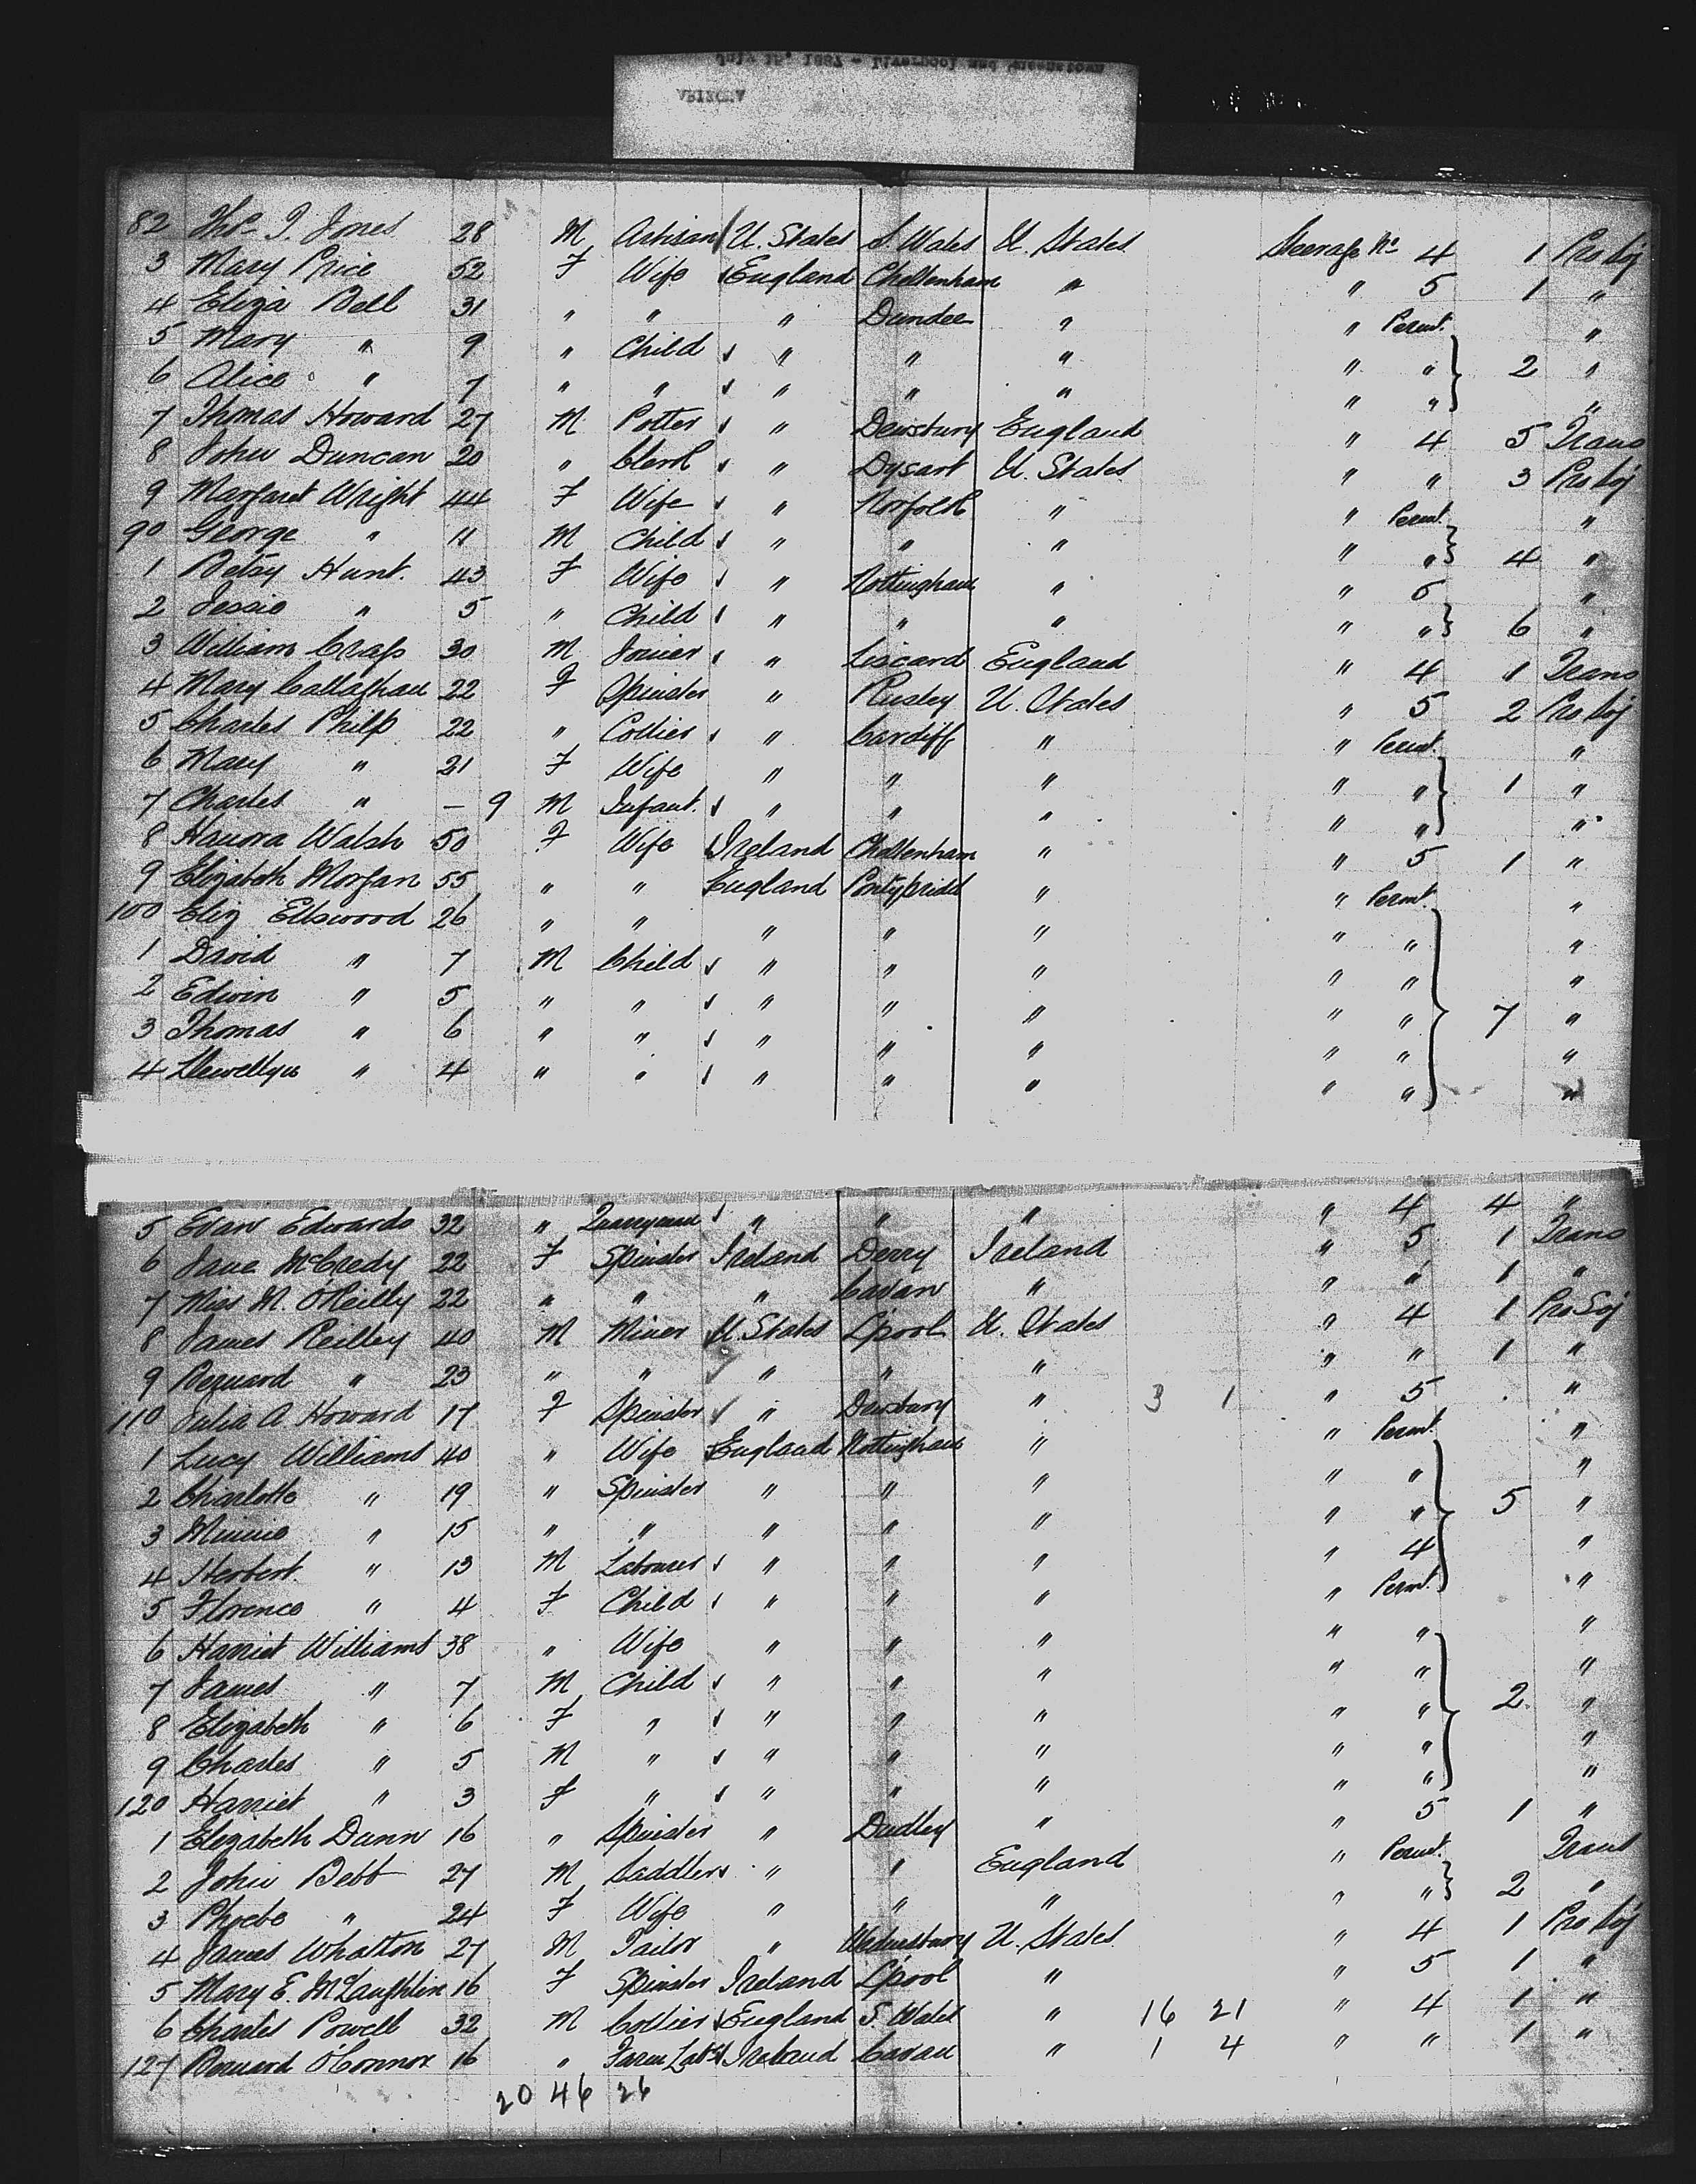 July 15, 1887 - Liverpool and Queenstown
ARIZONA
82 Thos. J. Jones 28 M Artisan U. States S. Wales U. States Steerage No 4 1 Pro Soj
3 Mary Price 52 F Wife England Cheltenham " " 5 1 "
4 Eliza Bell 31 " " " Dundee " " Permt. "
5 Mary " 9 " Child " " " " " 2 "
6 Alice " 7 " " " " " " " "
7 Thomas Howard 27 M Potter " Dewsbury England " 4 5 Trans
8 John Duncan 20 " Clerk " Dysart U. States " " 3 Pro Soj
9 Margaret Wright 44 F Wife " Norfolk " " Permt. "
90 George " 11 M Child " " " " " 4 "
1 Betsy Hunt. 43 F Wife " Nottingham " " 5 "
2 Jessie " 5 " Child " " " " " 6 "
3 William Crass 30 M Joiner " Liscard England " 4 1 Trans
4 Mary Callaghan 22 F Spinster " U. States " 5 2 Pro Soj
5 Charles Philp 22 " Collier " Cardiff " " Permt. "
6 Mary " 21 F Wife " " " " " 1 "
7 Charles " - 9 M Infant. " " " " " "
8 Hanora Walsh 50 F Wife Ireland Cheltenham " " 5 1 "
9 Elizabeth Morgan 55 " " England Pontypridd " " Permt. "
100 Eliz Ellswood 26 " " " " " " " "
1 David " 7 M Child " " " " " "
2 Edwin " 5 " " " " " " " 7 "
3 Thomas " 6 " " " " " " " "
4 Llewellyn " 4 " " " " " " " "
5 Evan Edwards 32 " Quarryman " " " " 4 4 "
6 Jane McCredy 22 F Spinster Ireland Derry Ireland " 5 1 Trans
7 Miss M. O'Reilly 22 " " " Cavan " " " 1 "
8 James Reilley 40 M Miner U States L'pool U. States " 4 1 Pro Soj
9 Bernard " 23 " " " " " " " 1 "
110 Julia A. Howard 17 F Spinster " Dewsbury " 3 1 " 5 . "
1 Lucy Williams 40 " Wife England Nottingham " " Permt. "
2 Charlotte " 19 " Spinster " " " " " "
3 Minnie " 15 " " " " " " " 5 "
4 Herbert. " 13 M Labourer " " " " 4 "
5 Florence " 4 F Child " " " " Permt. "
6 Harriet Williams 38 " Wife " " " " " "
7 James " 7 M Child " " " " " "
8 Elizabeth " 6 F " " " " " " 2 "
9 Charles " 5 M " " " " " " "
120 Harriet " 3 F " " " " " " "
1 Elizabeth Dunn 16 " Spinster " Dudley " " 5 1 "
2 John Bebb 27 M Saddler " " England " Permt. Trans
3 Phoebe " 24 F Wife " " " " " 2 "
4 James Whatton 27 M Tailor " Wednesbury U. States " 4 1 Pro Soj
5 Mary E. McLaughlin 16 F Spinster Ireland L'pool " " 5 1 "
6 Charles Powell 32 M Collier England S. Wales " 16 21 " 4 1 "
127 Bernard O'Connor 16 " Farm Labr Ireland Cavan " 1 4 " " 1 "
20 46 26